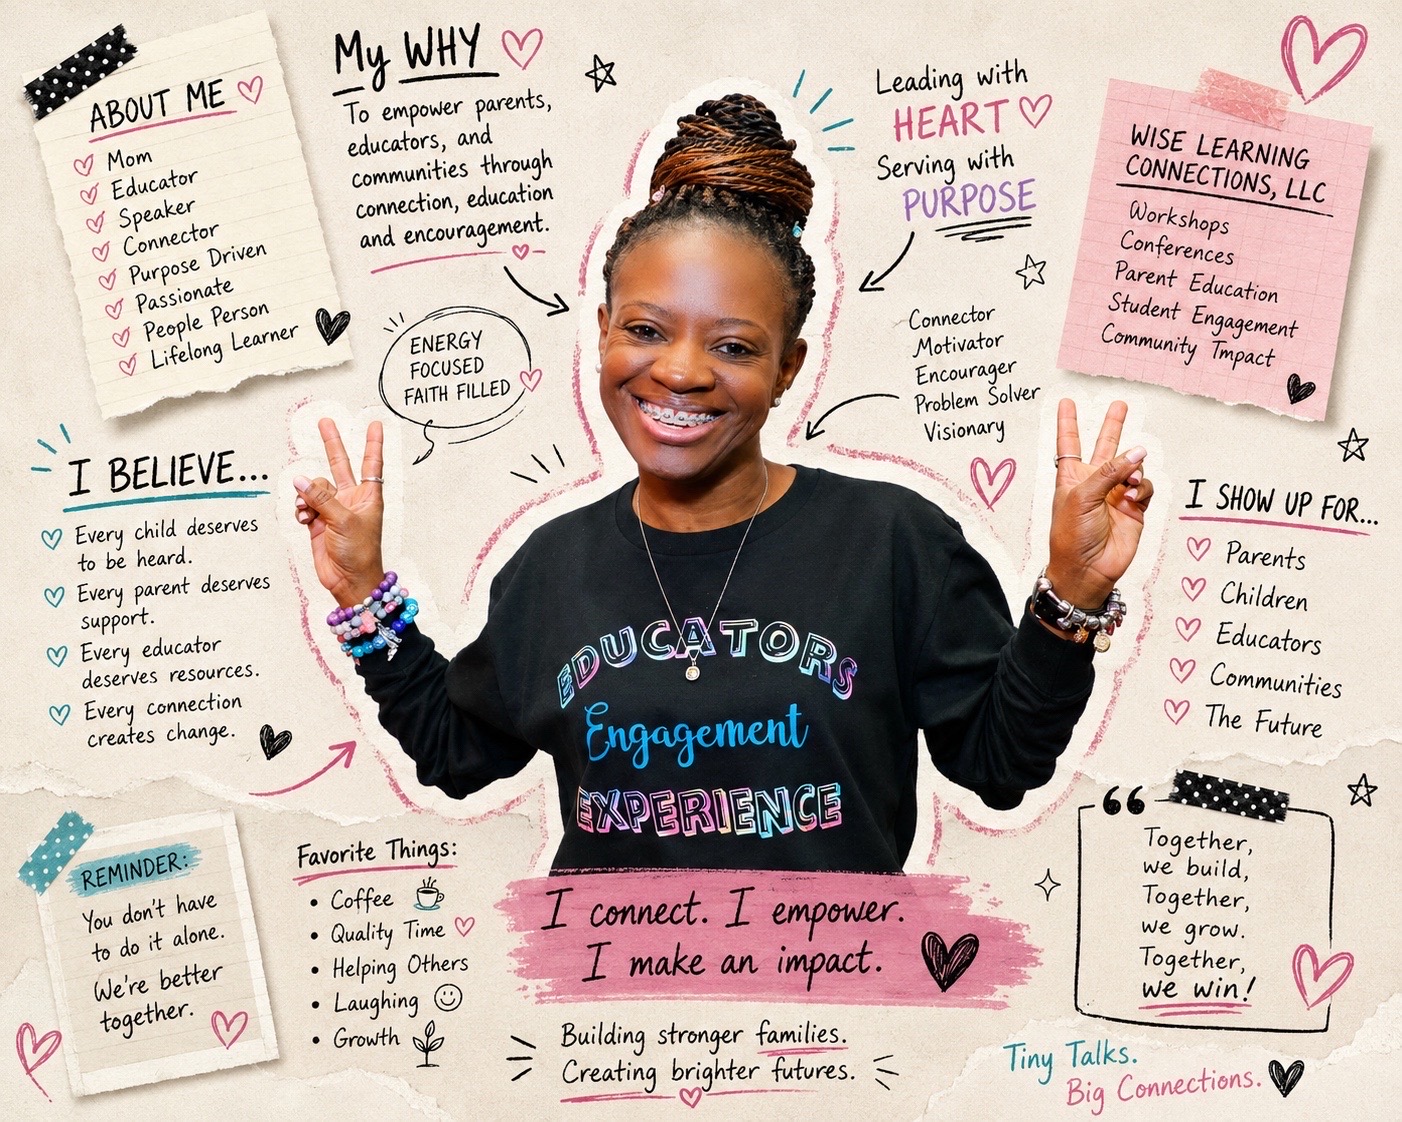 ABOUT ME
Mom
Educator
Speaker
Connector
Purpose Driven
Passionate
People Person
Lifelong Learner
My WHY
To empower parents,
educators, and
communities through
connection, education
and encouragement.
ENERGY
FOCUSED
FAITH FILLED
Leading with
HEART
Serving with
PURPOSE
Connector
Motivator
Encourager
Problem Solver
Visionary
WISE LEARNING
CONNECTIONS, LLC
Workshops
Conferences
Parent Education
Student Engagement
Community Tmpact
I BELIEVE...
Every child deserves
to be heard.
Every parent deserves
support.
Every educator
deserves resources.
Every connection
creates change.
I SHOW UP FOR...
Parents
Children
Educators
Communities
The Future
EDUCATORS
Engagement
EXPERIENCE
REMINDER:
You don't have
to do it alone.
We're better
together.
Favorite Things:
• Coffee
• Quality Time
• Helping Others
• Laughing
• Growth
I connect. I empower.
I make an impact.
Building stronger families.
Creating brighter futures.
“
Together,
we build,
Together,
we grow.
Together,
we win!
Tiny Talks.
Big Connections.